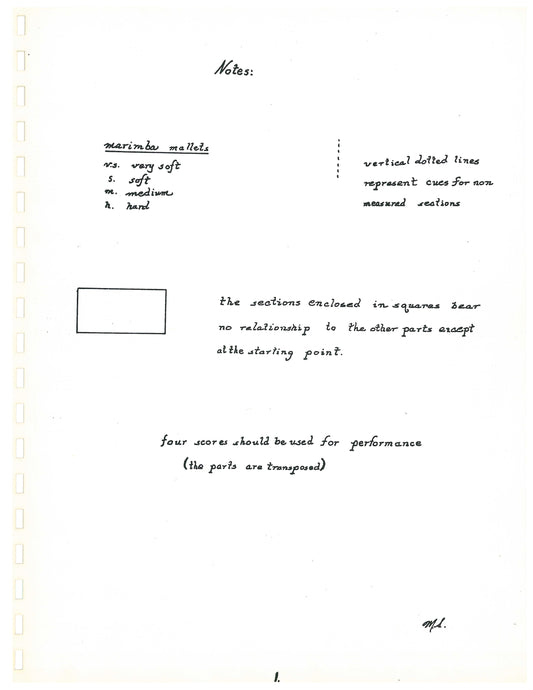 Notes:
marimba mallets
v.s. very soft
s. soft
m. medium
h. hard
vertical dotted lines
represent cues for non
measured sections
the sections enclosed in squares bear
no relationship to the other parts except
at the starting point.
four scores should be used for performance
(the parts are transposed)